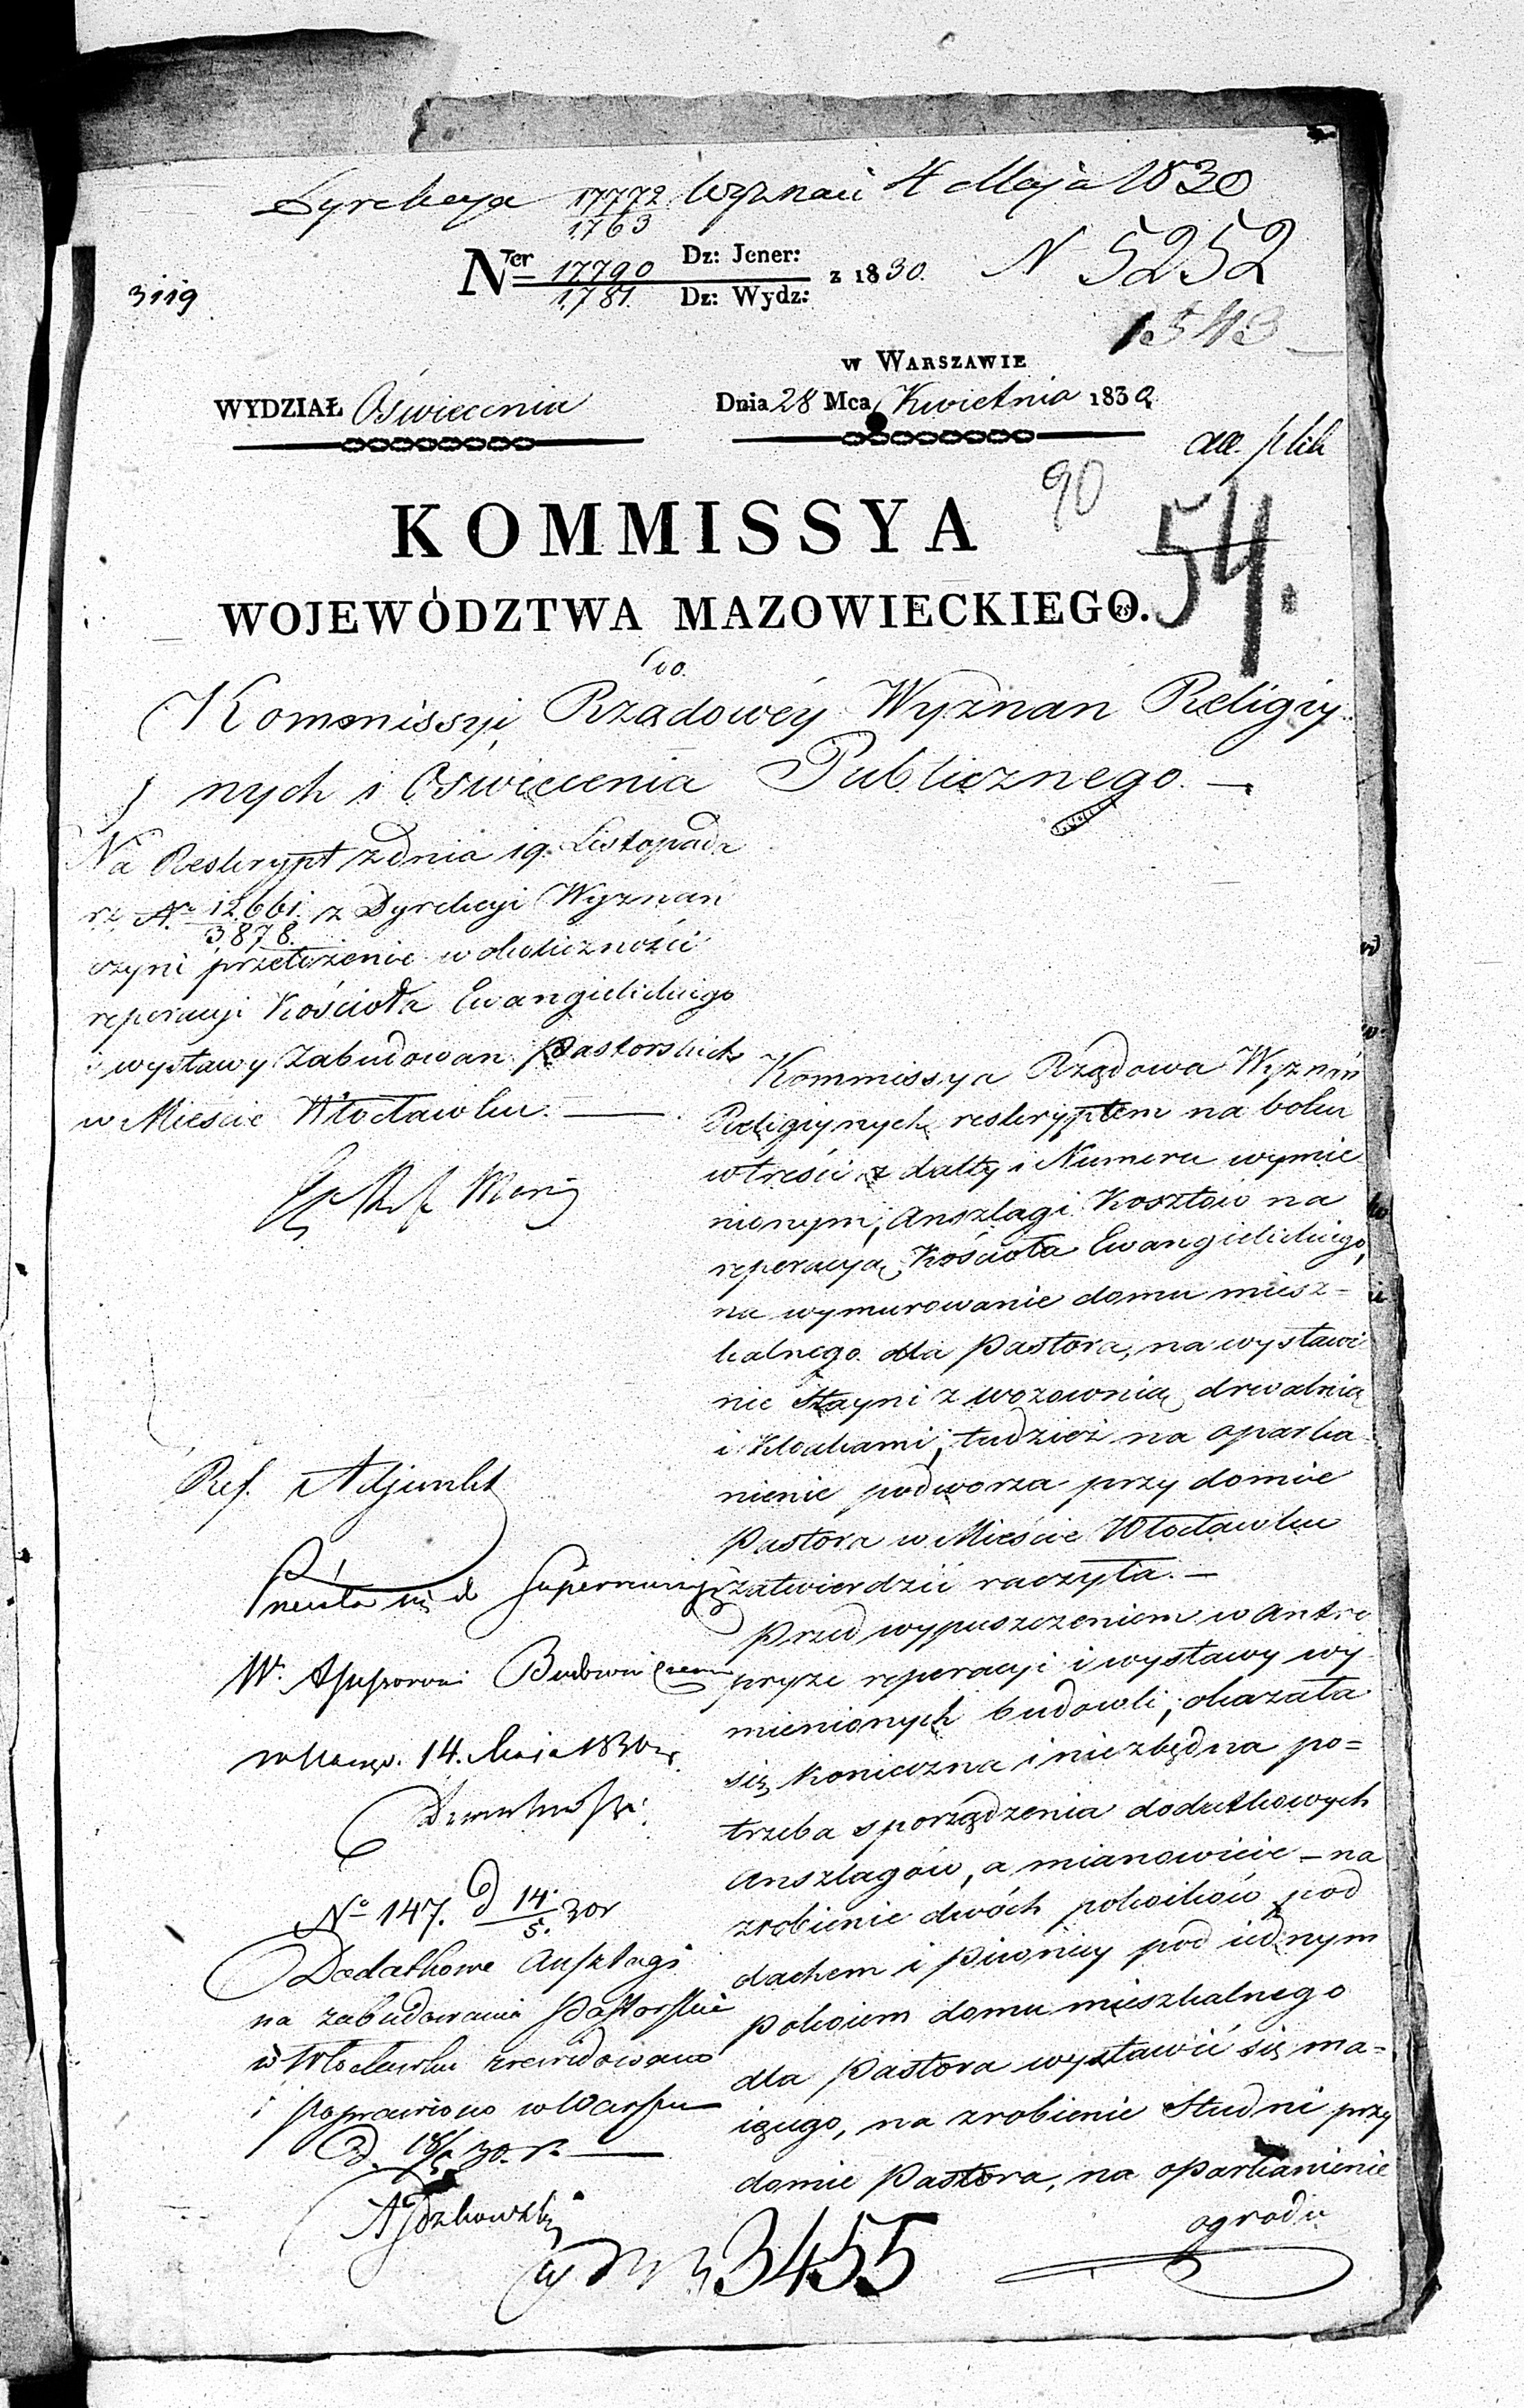 Dyrekcya 17772/1763 Wyznań 4 Maja 1830
Nter 17790/1781. Dz: Jener: Dz: Wydz: z 1830.
N 5252
3119
1543
w Warszawie
WYDZIAŁ Oświecenia
Dnia 28 Mca Kwietnia 1830
90
54.
KOMMISSYA
WOJEWÓDZTWA MAZOWIECKIEGO.
Do.
Kommissyi Rządowéy Wyznań Religiy
nych i Oświecenia Publicznego. —
Na Reskrypt z dnia 19. Listopada
r. z. Nr. 12.661./3878. z Dyrekcyi Wyznań
czyni przełożenie w okoliczności
reperacyi Kościoła Ewangielickiego
i wystawy Zabudowań Pastorskich
w Mieście Włocławku. —
Ref. Adjunkt
W. Assessorowi Budowniczemu
14. Maja 1830 r.
No 147. d 14/5. 30 r
Dodatkowe Anszlagi
na zabudowania Pastorskie
w Włocławku zrewidowano
i poprawiono w Warsza
D. 18/5 30. r. —
Kommissya Rządowa Wyznań
Religiynych reskryptem na boku
w treści z datty i Numeru wymie
nionym, Anszlagi Kosztów na
reperacyą Kościoła Ewangielickiego,
na wymurowanie domu miesz-
kalnego dla Pastora, na wystawie
nie Stayni z wozownią, drwalnią
i Kloakami, tudzież na oparka
nienie podworza przy domie
Pastora w Mieście Włocławku
zatwierdzić raczyła. —
Przed wypuszczeniem w Antre
pryze reperacyi i wystawy wy
mienionych budowli, okazała
się Konieczna i niezbędna po=
trzeba sporządzenia dodatkowych
Anszlagów, a mianowicie — na
zrobienie dwóch pokoików pod
dachem i Piwnicy pod iednym
pokoiem domu mieszkalnego
dla Pastora wystawić się ma=
iącego, na zrobienie Studni przy
domie Pastora, na oparkanienie
ogrodu
3455